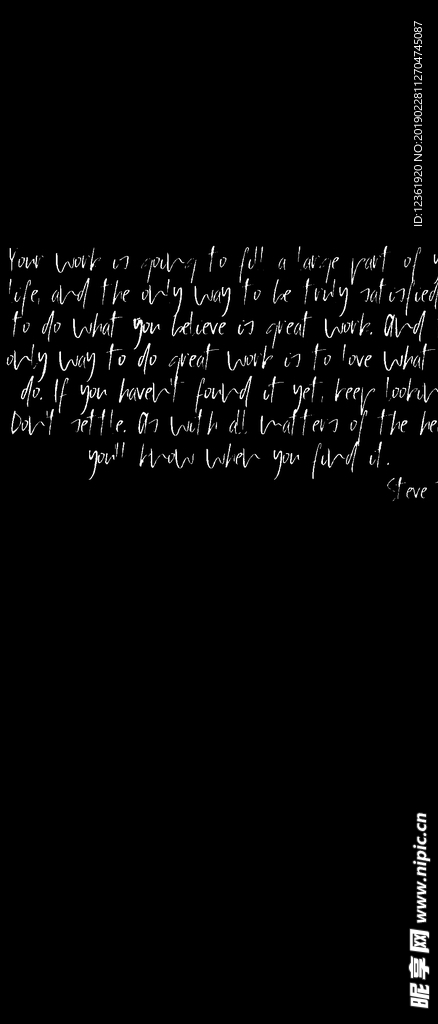 ID:12361920 NO:20190228112704745087
Your work is going to fill a large part of
life, and the only way to be truly satisfied
to do what you believe is great work. And
only way to do great work is to love what
do. If you haven't found it yet, keep lookin
Don't settle. As with all matters of the he
you'll know when you find it.
Steve
昵享网 www.nipic.cn